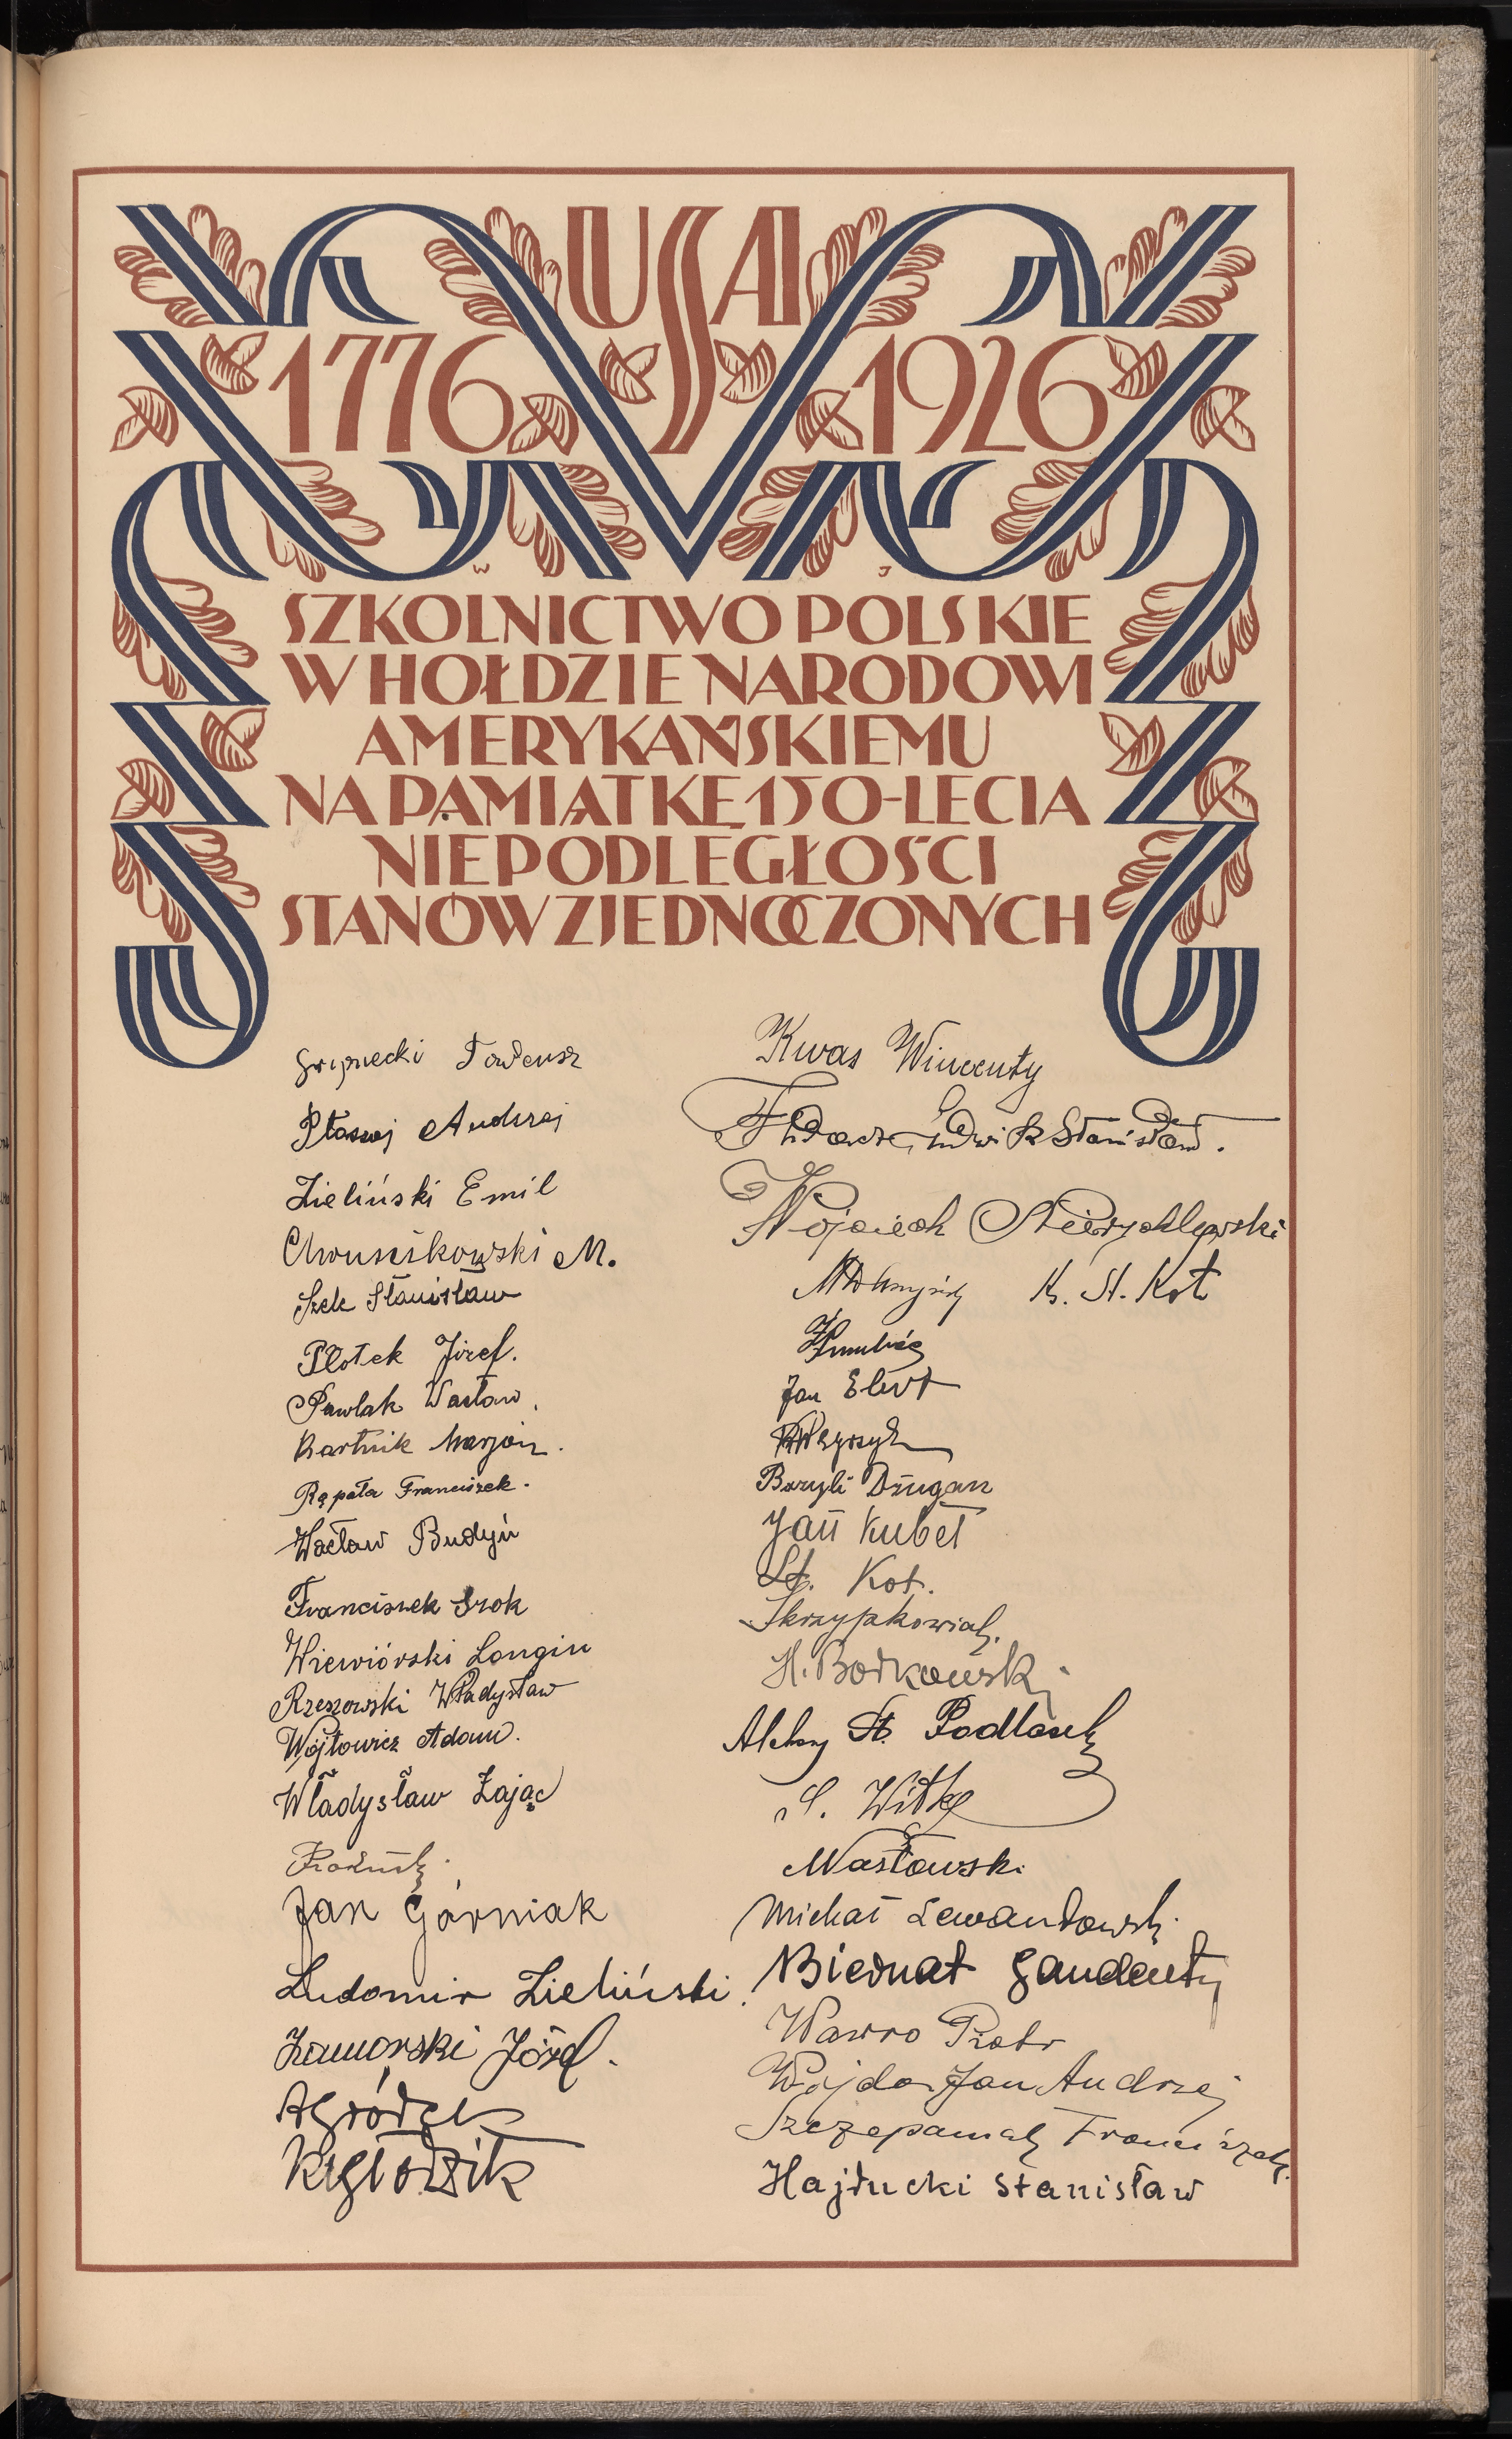 USA
1776 1926
W J
SZKOLNICTWO POLSKIE
W HOŁDZIE NARODOWI
AMERYKAŃSKIEMU
NA PAMIĄTKĘ 150-LECIA
NIEPODLEGŁOŚCI
STANÓW ZJEDNOCZONYCH
Tadeusz
Andrzej
Zieliński Emil
M.
Stanisław
Plotek Józef.
Pawlak Wacław
Bartnik Marjan.
Rąpała Franciszek.
Wacław Budyń
Franciszek Srok
Wiewiórski Longin
Rzeszowski Władysław
Wójtowicz Adam.
Władysław Zając
Jan Górniak
Ludomir Zieliński.
Zamorski Józef.
A Gródek
Kwas Wincenty
Ludwik Stanisław.
Wojciech Niedrychlewski
K. St. Kot
Jan Elert
Bazyli Dziugan
Jan Kubeł
St. Kot.
Skrzypkowiak.
H. Borkowski
Aleksy St. Podlasek
S. Witke
Masłowski
Michał Lewandowski
Biernat Gaudenty
Wawro Piotr
Wojda Jan Andrzej
Szczepaniak Franciszek.
Hajducki Stanisław